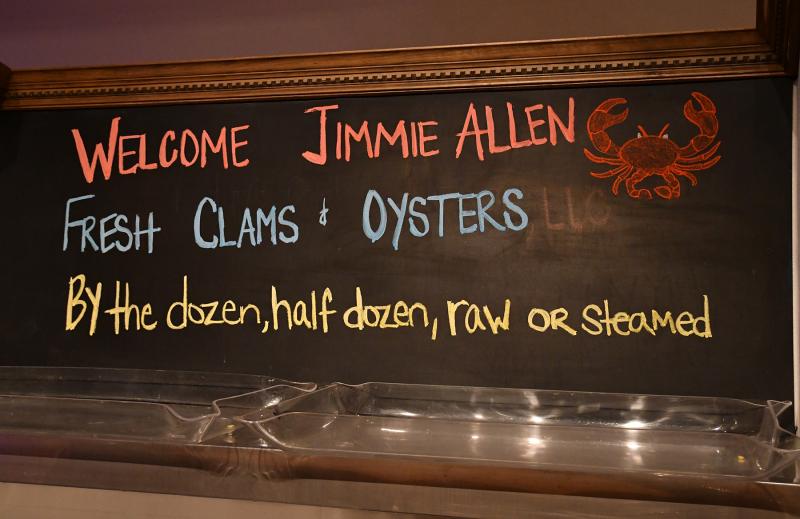 WELCOME JIMMIE ALLEN
FRESH CLAMS & OYSTERS LLC
BY the dozen, half dozen, raw OR steamed